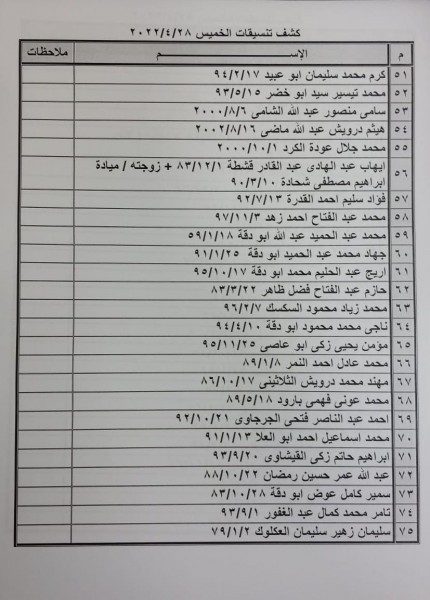 كشف تنسيقات الخميس ٢٠٢٢/٤/٢٨
م الإســـــم ملاحظات
٥١ كرم محمد سليمان ابو عبيد ٩٤/٢/١٧
٥٢ محمد تيسير سيد ابو خضر ٩٣/٥/١٥
٥٣ سامى منصور عبد الله الشامى ٢٠٠٠/٨/٦
٥٤ هيثم درويش عبد الله ماضى ٢٠٠٢/٨/١٦
٥٥ محمد جلال عودة الكرد ٢٠٠٠/١٠/١
٥٦ ايهاب عبد الهادى عبد القادر قشطة ٨٣/١٢/١ + زوجته / ميادة
ابراهيم مصطفى شحادة ٩٠/٣/١٠
٥٧ فؤاد سليم احمد القدرة ٩٢/٧/١٣
٥٨ محمد عبد الفتاح احمد زهد ٩٧/١١/٣
٥٩ محمد عبد الحميد عبد الله ابو دقة ٥٩/١/١٨
٦٠ جهاد محمد عبد الحميد ابو دقة ٩١/١/٢٥
٦١ اريج عبد الحليم محمد ابو دقة ٩٥/١٠/١٧
٦٢ حازم عبد الفتاح فضل ظاهر ٨٣/٣/٢٢
٦٣ محمد زياد محمود السكسك ٩٦/٢/٧
٦٤ ناجى محمد محمود ابو دقة ٩٤/٤/١٠
٦٥ مؤمن يحيى زكى ابو عاصى ٩٥/١١/٢٥
٦٦ محمد عادل احمد النمر ٨٩/١/٨
٦٧ مهند محمد درويش الثلاثينى ٨٦/١٠/١٧
٦٨ محمد عونى فهمى بارود ٨٩/٥/١٨
٦٩ احمد عبد الناصر فتحى الجرجاوى ٩٢/١٠/٢١
٧٠ محمد اسماعيل احمد ابو العلا ٩١/١/١٣
٧١ ابراهيم حاتم زكى القيشاوى ٩٣/٩/٢٠
٧٢ عبد الله عمر حسين رمضان ٨٨/١٠/٢٢
٧٣ سمير كامل عوض ابو دقة ٨٣/١٠/٢٨
٧٤ تامر محمد كمال عبد الغفور ٩٣/٩/١
٧٥ سليمان زهير سليمان العكلوك ٧٩/١/٢